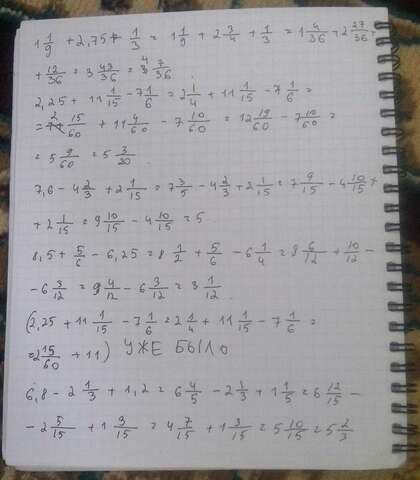 1 1/9 + 2,75 + 1/3 = 1 1/9 + 2 3/4 + 1/3 = 1 4/36 + 2 27/36 +
+ 12/36 = 3 43/36 = 4 7/36.
2,25 + 11 1/15 - 7 1/6 = 2 1/4 + 11 1/15 - 7 1/6 =
= 2 15/60 + 11 4/60 - 7 10/60 = 12 19/60 - 7 10/60 =
= 5 9/60 = 5 3/20.
7,6 - 4 2/3 + 2 1/15 = 7 3/5 - 4 2/3 + 2 1/15 = 7 9/15 - 4 10/15 +
+ 2 1/15 = 9 10/15 - 4 10/15 = 5
8,5 + 5/6 - 6,25 = 8 1/2 + 5/6 - 6 1/4 = 8 6/12 + 10/12 -
- 6 3/12 = 9 4/12 - 6 3/12 = 3 1/12.
(2,25 + 11 1/15 - 7 1/6 = 2 1/4 + 11 1/15 - 7 1/6 =
= 2 15/60 + 11) УЖЕ БЫЛО
6,8 - 2 1/3 + 1,2 = 6 4/5 - 2 1/3 + 1 1/5 = 6 12/15 -
- 2 5/15 + 1 3/15 = 4 7/15 + 1 3/15 = 5 10/15 = 5 2/3